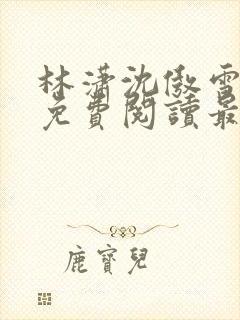 林瀟沈傲雪
免費閱讀最
鹿寶兒